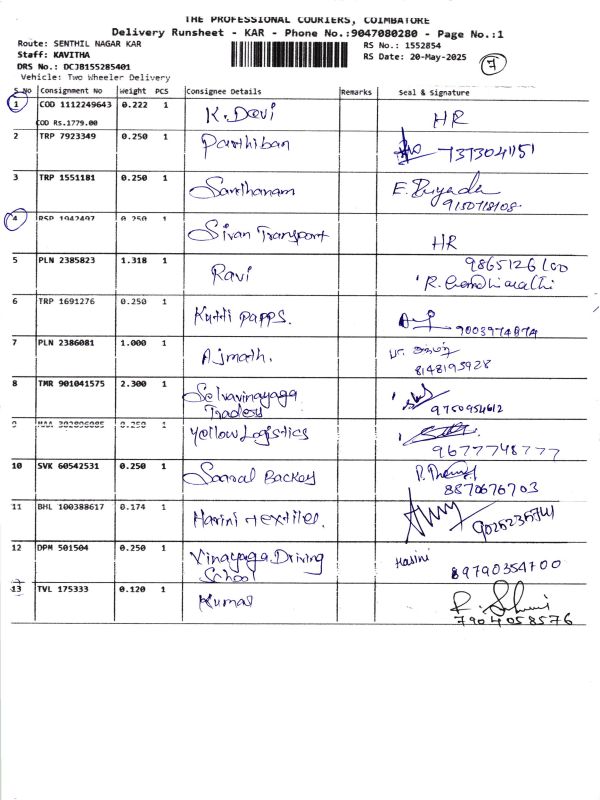 THE PROFESSIONAL COURIERS, COIMBATORE
Delivery Runsheet - KAR - Phone No.:9047080280 - Page No.:1
Route: SENTHIL NAGAR KAR
RS No.: 1552854
Staff: KAVITHA
RS Date: 20-May-2025
7
DRS No.: DCJB155285401
Vehicle: Two Wheeler Delivery
S No Consignment No Weight PCS Consignee Details Remarks Seal & Signature
1 COD 1112249643 0.222 1 K. Devi HR
COD Rs.1779.00
2 TRP 7923349 0.250 1 Parthiban
3 TRP 1551181 0.250 1 Santhanam E. Priyada
9150718108
4 1942497 0.250 1 Sivan Transport HR
5 PLN 2385823 1.318 1 Ravi
6 TRP 1691276 0.250 1 Kutti papps.
9003974874
7 PLN 2386081 1.000 1 Ajmath.
8148193928
8 TMR 901041575 2.300 1 Selvavinayaga
Traders
9750954612
9 0.250 1 Yellow Logistics
9677748777
10 SVK 60542531 0.250 1
8870676703
11 BHL 100388617 0.174 1 Harini textiles.
9025235741
12 DPM 501504 0.250 1 Vinayaga Driving Harini
School 89790354700
13 TVL 175333 0.120 1 Kumar
7904058576